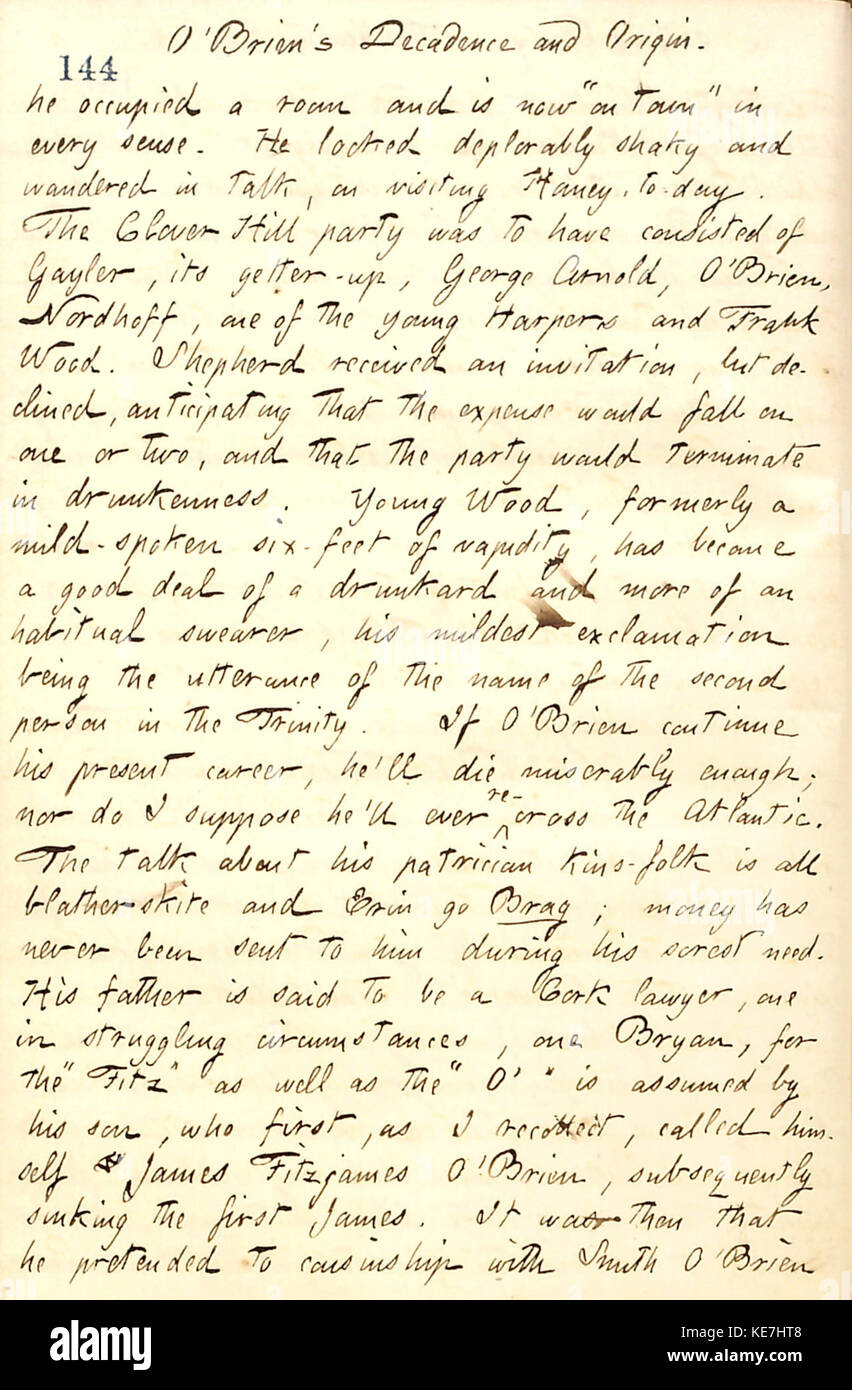 O'Brien's Decadence and Origin.
144
he occupied a room and is now "on town" in
every sense. He looked deplorably shaky and
wandered in talk, on visiting Haney, to-day.
The Clover Hill party was to have consisted of
Gayler, its getter-up, George Arnold, O'Brien,
Nordhoff, one of the young Harpers and Frank
Wood. Shepherd received an invitation, but de-
clined, anticipating that the expense would fall on
one or two, and that the party would terminate
in drunkenness. Young Wood, formerly a
mild-spoken six-feet of vapidity, has become
a good deal of a drunkard and more of an
habitual swearer, his mildest exclamation
being the utterance of the name of the second
person in the Trinity. If O'Brien continue
his present career, he'll die miserably enough;
nor do I suppose he'll ever re-cross the Atlantic.
The talk about his patrician kins-folk is all
blather-skite and Erin go Brag; money has
never been sent to him during his sorest need.
His father is said to be a Cork lawyer, one
in struggling circumstances, one Bryan, for
the "Fitz" as well as the "O'" is assumed by
his son, who first, as I recollect, called him-
self James Fitzjames O'Brien, subsequently
sinking the first James. It was then that
he pretended to cousinship with Smith O'Brien
alamy
Image ID: KE7HT8
www.alamy.com